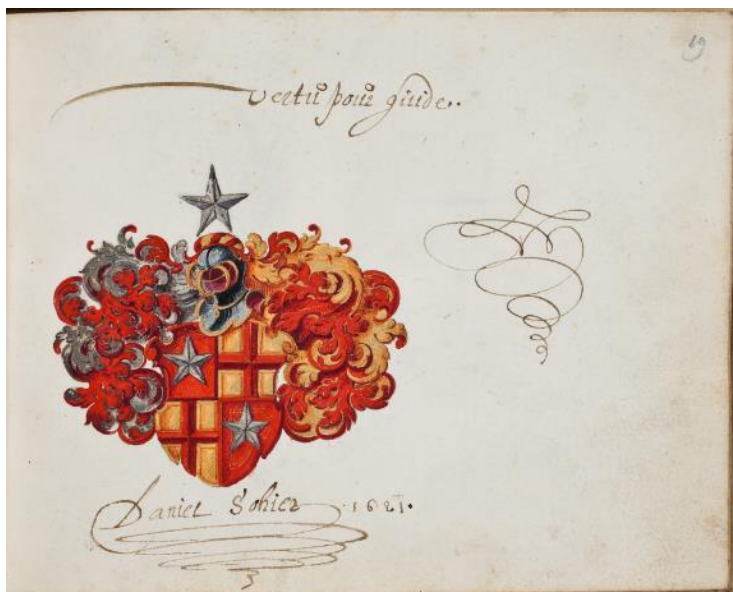 19
Vertu pour guide..
Daniel Sohier .1621.